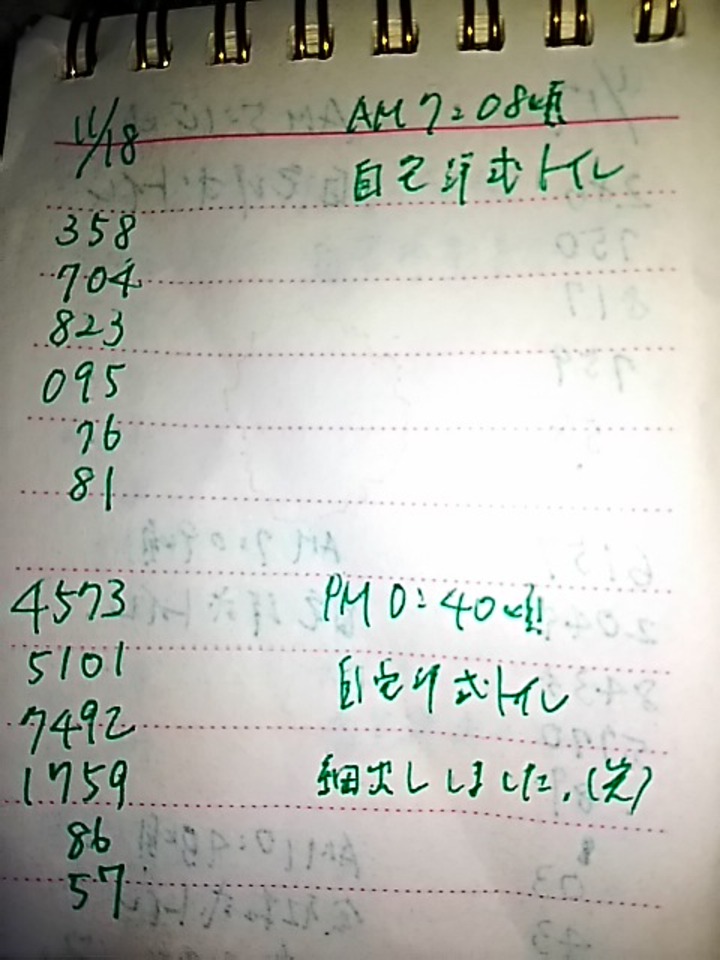 11/18 AM 7:08頃
自宅洋式トイレ
358
704
823
095
76
81
4573 PM 0:40頃
5101
自宅洋式トイレ
7492
1759 細出ししました。(笑)
86
57